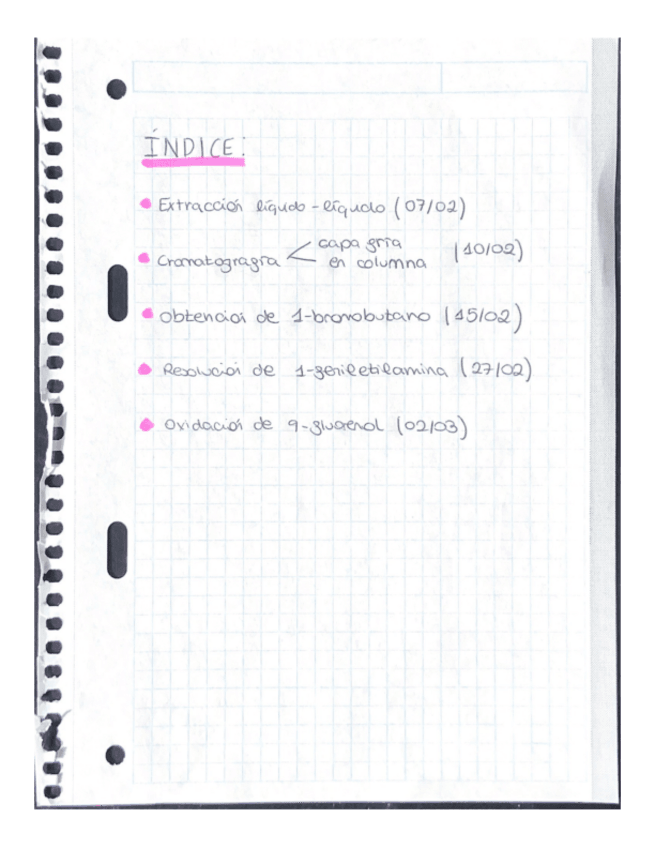 ÍNDICE:
Extracción líquido-líquido (07/02)
Cromatografía < capa fría (10/02)
en columna
Obtención de 1-bromobutano (15/02)
Resolución de 1-feniletilamina (27/02)
Oxidación de 9-fluorenol (02/03)